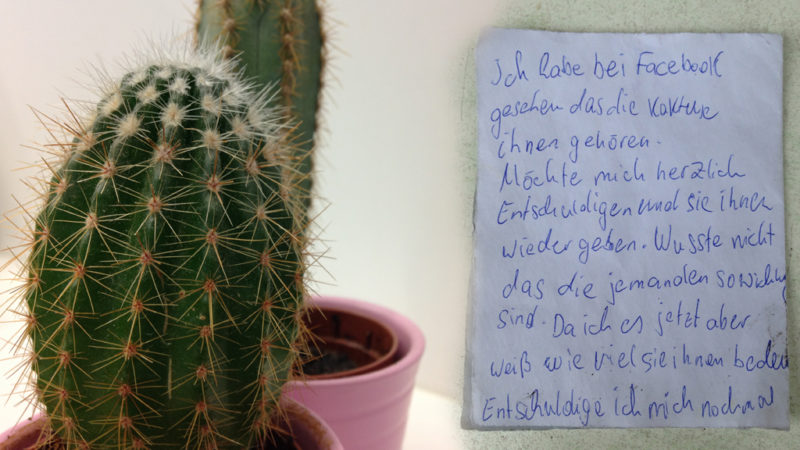 Ich habe bei Facebook
gesehen das die Kakture
ihnen gehören.
Möchte mich herzlich
Entschuldigen und sie ihnen
wieder geben. Wusste nicht
das die jemanden so wichtig
sind. Da ich es jetzt aber
weiß wie viel sie ihnen bedeu
Entschuldige ich mich nochmal